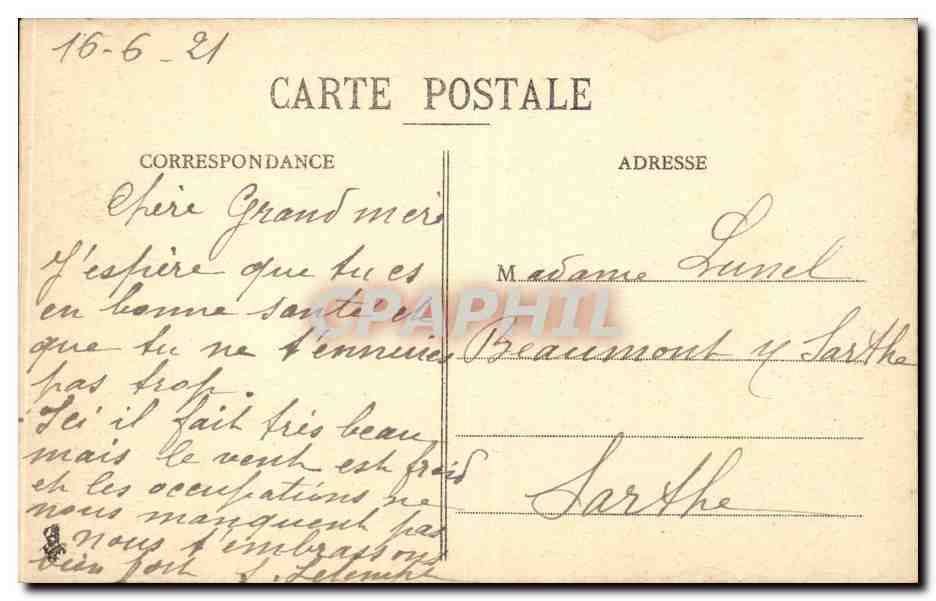 16-6-21
CARTE POSTALE
CORRESPONDANCE
Chère Grand mère
J'espère que tu es
en bonne santé et
que tu ne t'ennuies
pas trop.
Ici il fait très beau
mais le vent est froid
et les occupations ne
nous manquent pas
nous t'embrassons
bien fort
ADRESSE
Madame Lunel
Beaumont s/ Sarthe
Sarthe
CPAPHIL